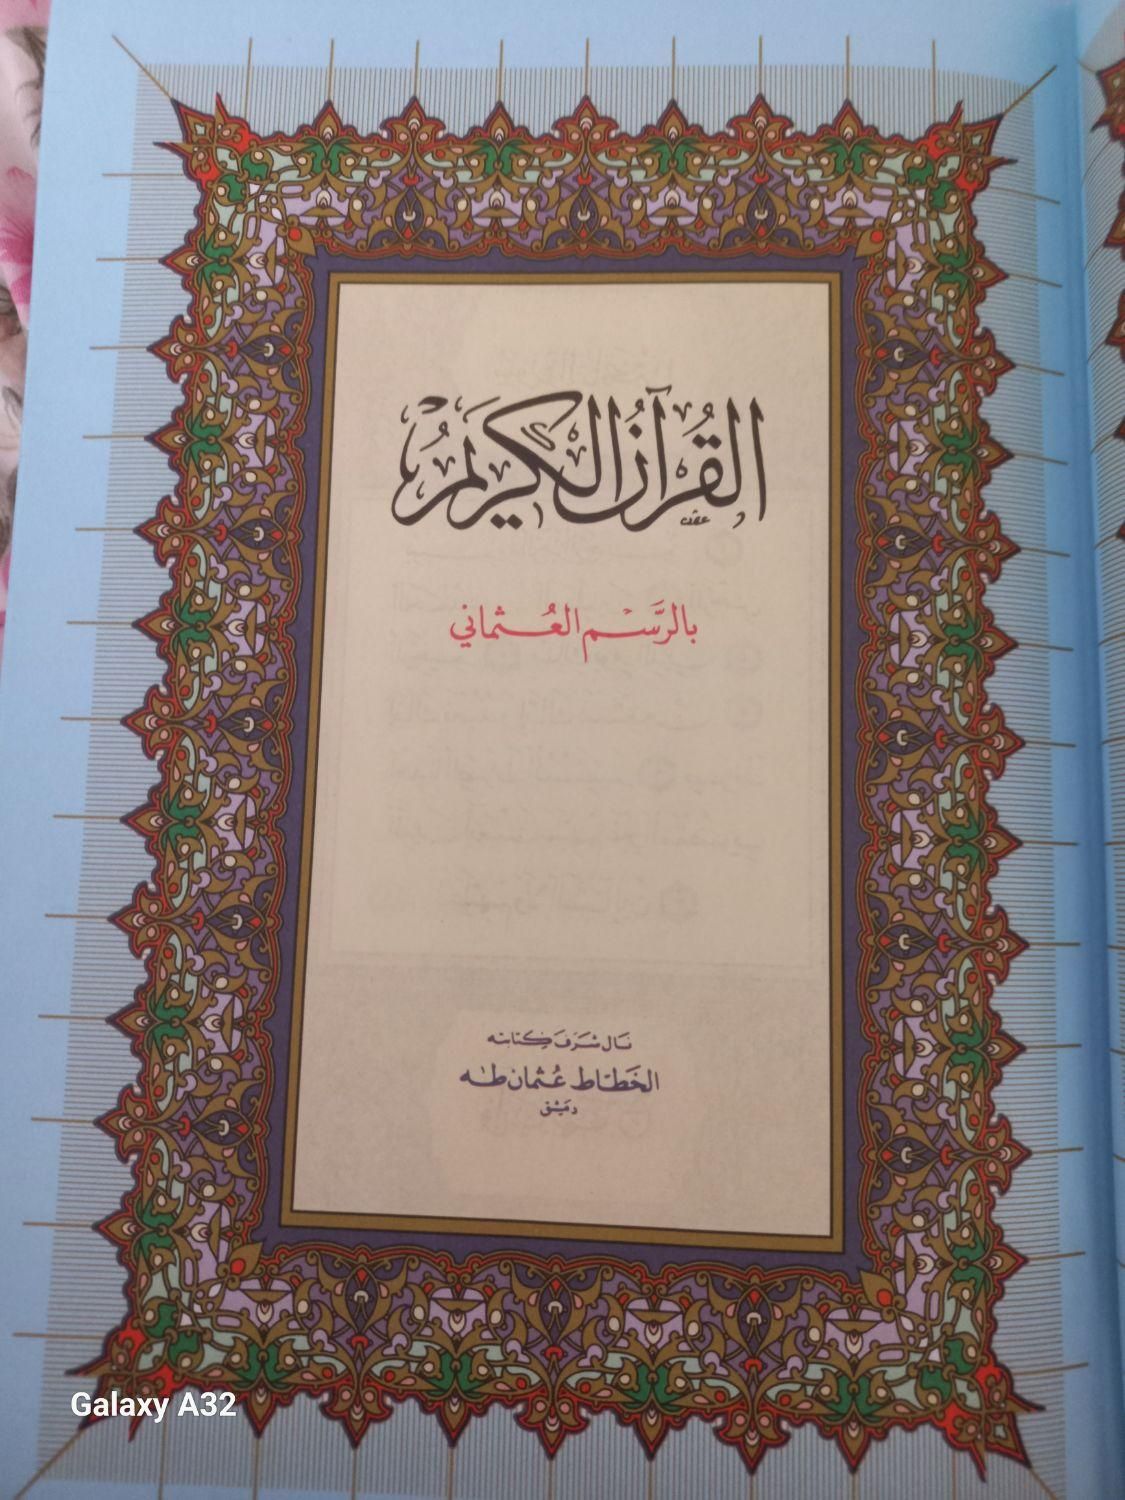 القُرآنُ الكَرِيمُ
بالرَّسْمِ العُثماني
نَال شَرَفَ كِتَابَته
الخَطّاط عُثمان طٰه
دمَشق
Galaxy A32